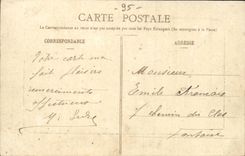 95
CARTE POSTALE
La Correspondance au recto n'est pas acceptée par tous les Pays Étrangers (Se renseigner à la Poste)
CORRESPONDANCE
ADRESSE
Votre carte m'a
fait plaisir
remerciements
affectueux
Monsieur
Emile François
Chemin des